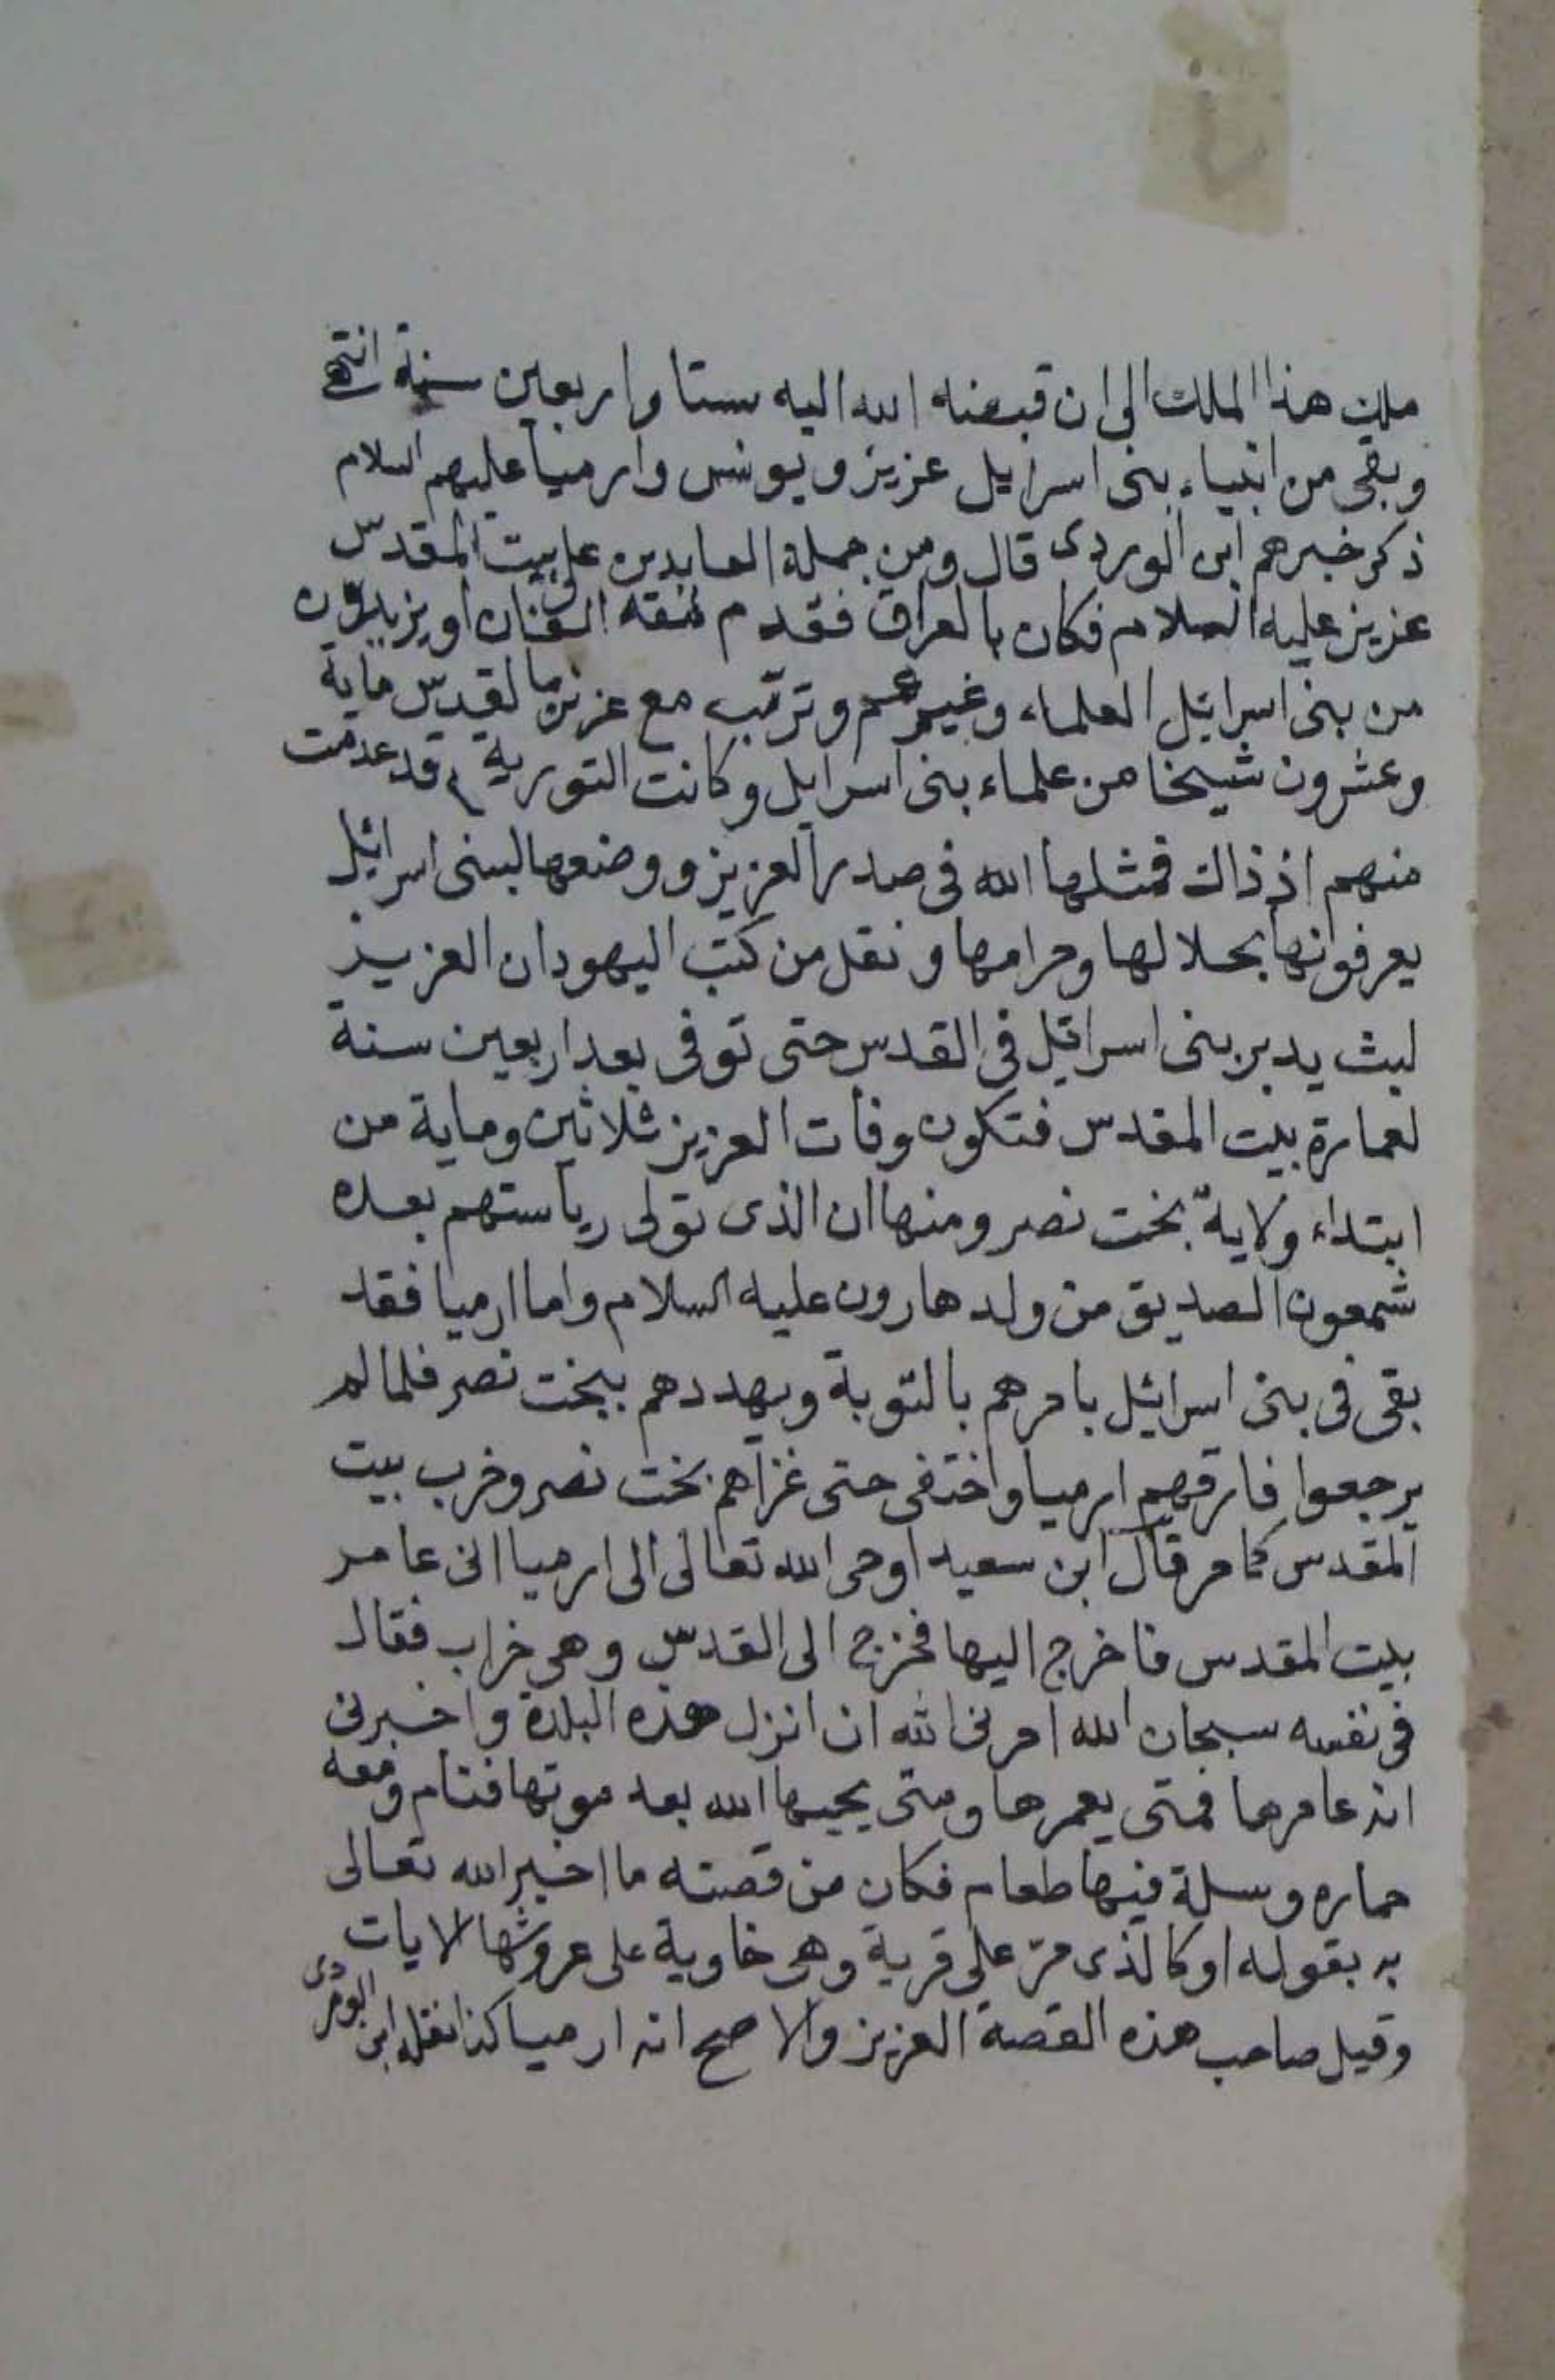 ملك هذا الملك الى ان قبضه الله اليه ستا واربعين سنة انتهى
وبقى من انبياء بنى اسرايل عزيز ويونس وارميا عليهم السلام
ذكر خبرهم ابن الوردى قال ومن جملة العابدين على بيت المقدس
عزيز عليه السلام فكان بالعراق فقدم الفان او يزيدون
من بنى اسرائيل العلماء وغيرهم وترتب مع عزيز بالقدس ماية
وعشرون شيخا من علماء بنى اسرايل وكانت التورية قد عدمت
منهم اذ ذاك فمثلها الله فى صدر العزيز ووضعها لبنى اسرائيل
يعرفونها بحلالها وحرامها ونقل من كتب اليهود ان العزيز
لبث يدبر بنى اسرائيل فى القدس حتى توفى بعد اربعين سنة
لعمارة بيت المقدس فتكون وفات العزيز ثلاثين وماية من
ابتداء ولاية بخت نصر ومنها ان الذى تولى رياستهم بعده
شمعون الصديق من ولد هارون عليه السلام واما ارميا فقد
بقى فى بنى اسرائيل يامرهم بالتوبة ويهددهم ببخت نصر فلما لم
يرجعوا فارقهم ارميا واختفى حتى غزاهم بخت نصر وخرب بيت
المقدس كما مر قال ابن سعيد اوحى الله تعالى الى ارميا انى عامر
بيت المقدس فاخرج اليها فخرج الى القدس وهى خراب فقال
فى نفسه سبحان الله امرنى الله ان انزل هذه البلدة واخبرنى
انه عامرها فمتى يعمرها ومتى يحييها الله بعد موتها فنام ومعه
حماره وسلة فيها طعام فكان من قصته ما اخبر الله تعالى
به بقوله او كالذى مرّ على قرية وهى خاوية على عروشها الايات
وقيل صاحب هذه القصة العزيز والاصح انه ارميا كذا نقله ابن الوردى